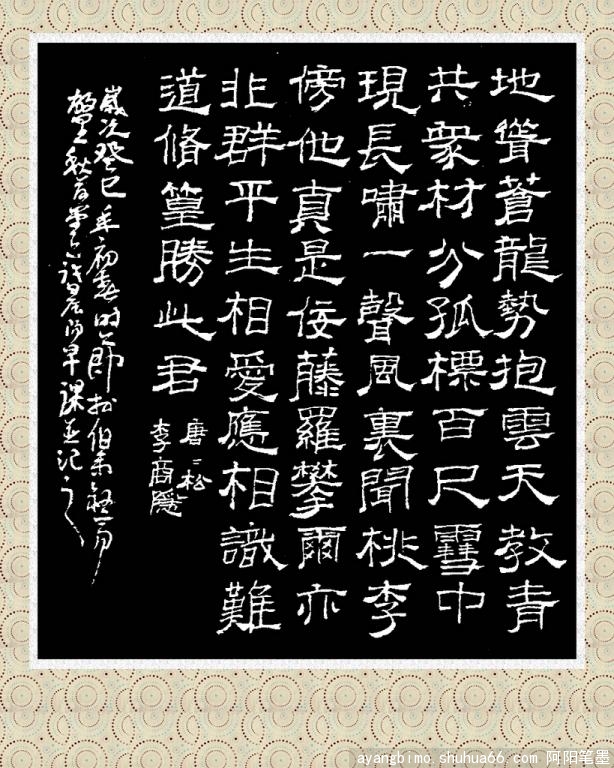 地聳蒼龍勢抱雲天教青
共衆材分孤標百尺雪中
現長嘯一聲風裏聞桃李
傍他真是佞藤羅攀爾亦
非群平生相愛應相識難
道脩篁勝此君
唐 松
李商隱
歲次癸巳年初春時 松伯
秋 早課並記之
ayangbimo.shuhua66.com 阿阳笔墨